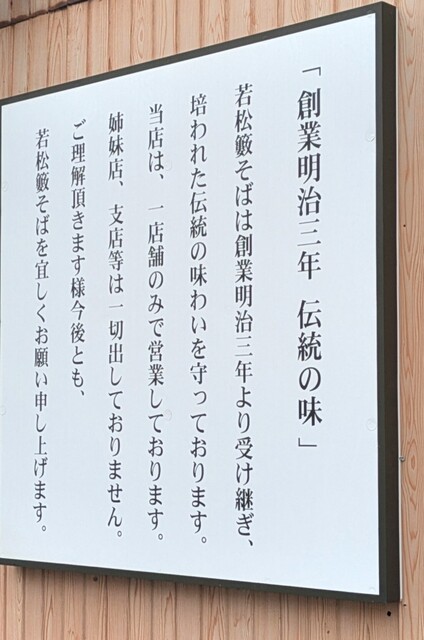 「創業明治三年 伝統の味」
若松籔そばは創業明治三年より受け継ぎ、
培われた伝統の味わいを守っております。
当店は、一店舗のみで営業しております。
姉妹店、支店等は一切出しておりません。
ご理解頂きます様今後とも、
若松籔そばを宜しくお願い申し上げます。